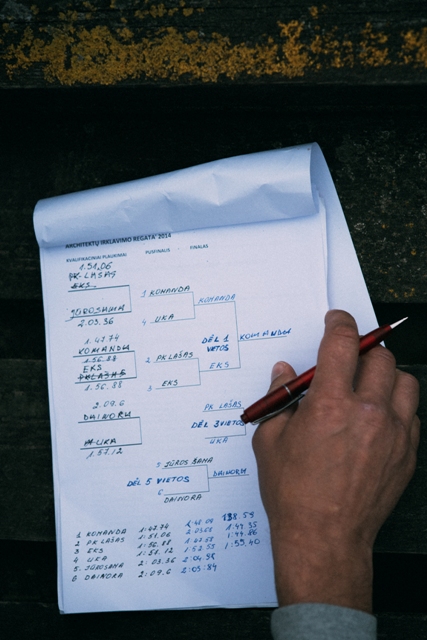 ARCHITEKTŲ IRKLAVIMO REGATA 2014
KVALIFIKACINIAI PLAUKIMAI PUSFINALIS FINALAS
1.51.06
PK-LAŠAS
EKS
JŪROSANA
2.03.36
1.47.74
KOMANDA
1.56.88
EKS
1.56.88
2.09.6
DAINORA
UKA
1.51.12
1 KOMANDA
4 UKA
KOMANDA
2 PK LAŠAS
3 EKS
EKS
DĖL 1 VIETOS
KOMANDA
PK LAŠAS
DĖL 3 VIETOS
UKA
5 JŪROSANA
DĖL 5 VIETOS
DAINORA
6 DAINORA
1 KOMANDA 1:47.74 138.59
2 PK LAŠAS 1:51.06 1:47.35
3 EKS 1:56.88 1:47.58 1:49.86
4 UKA 1:51.12 1:52.55 1:59.40
5. JŪROSANA 2:03.36 2:04.58
6 DAINORA 2:09.6 2:03:84